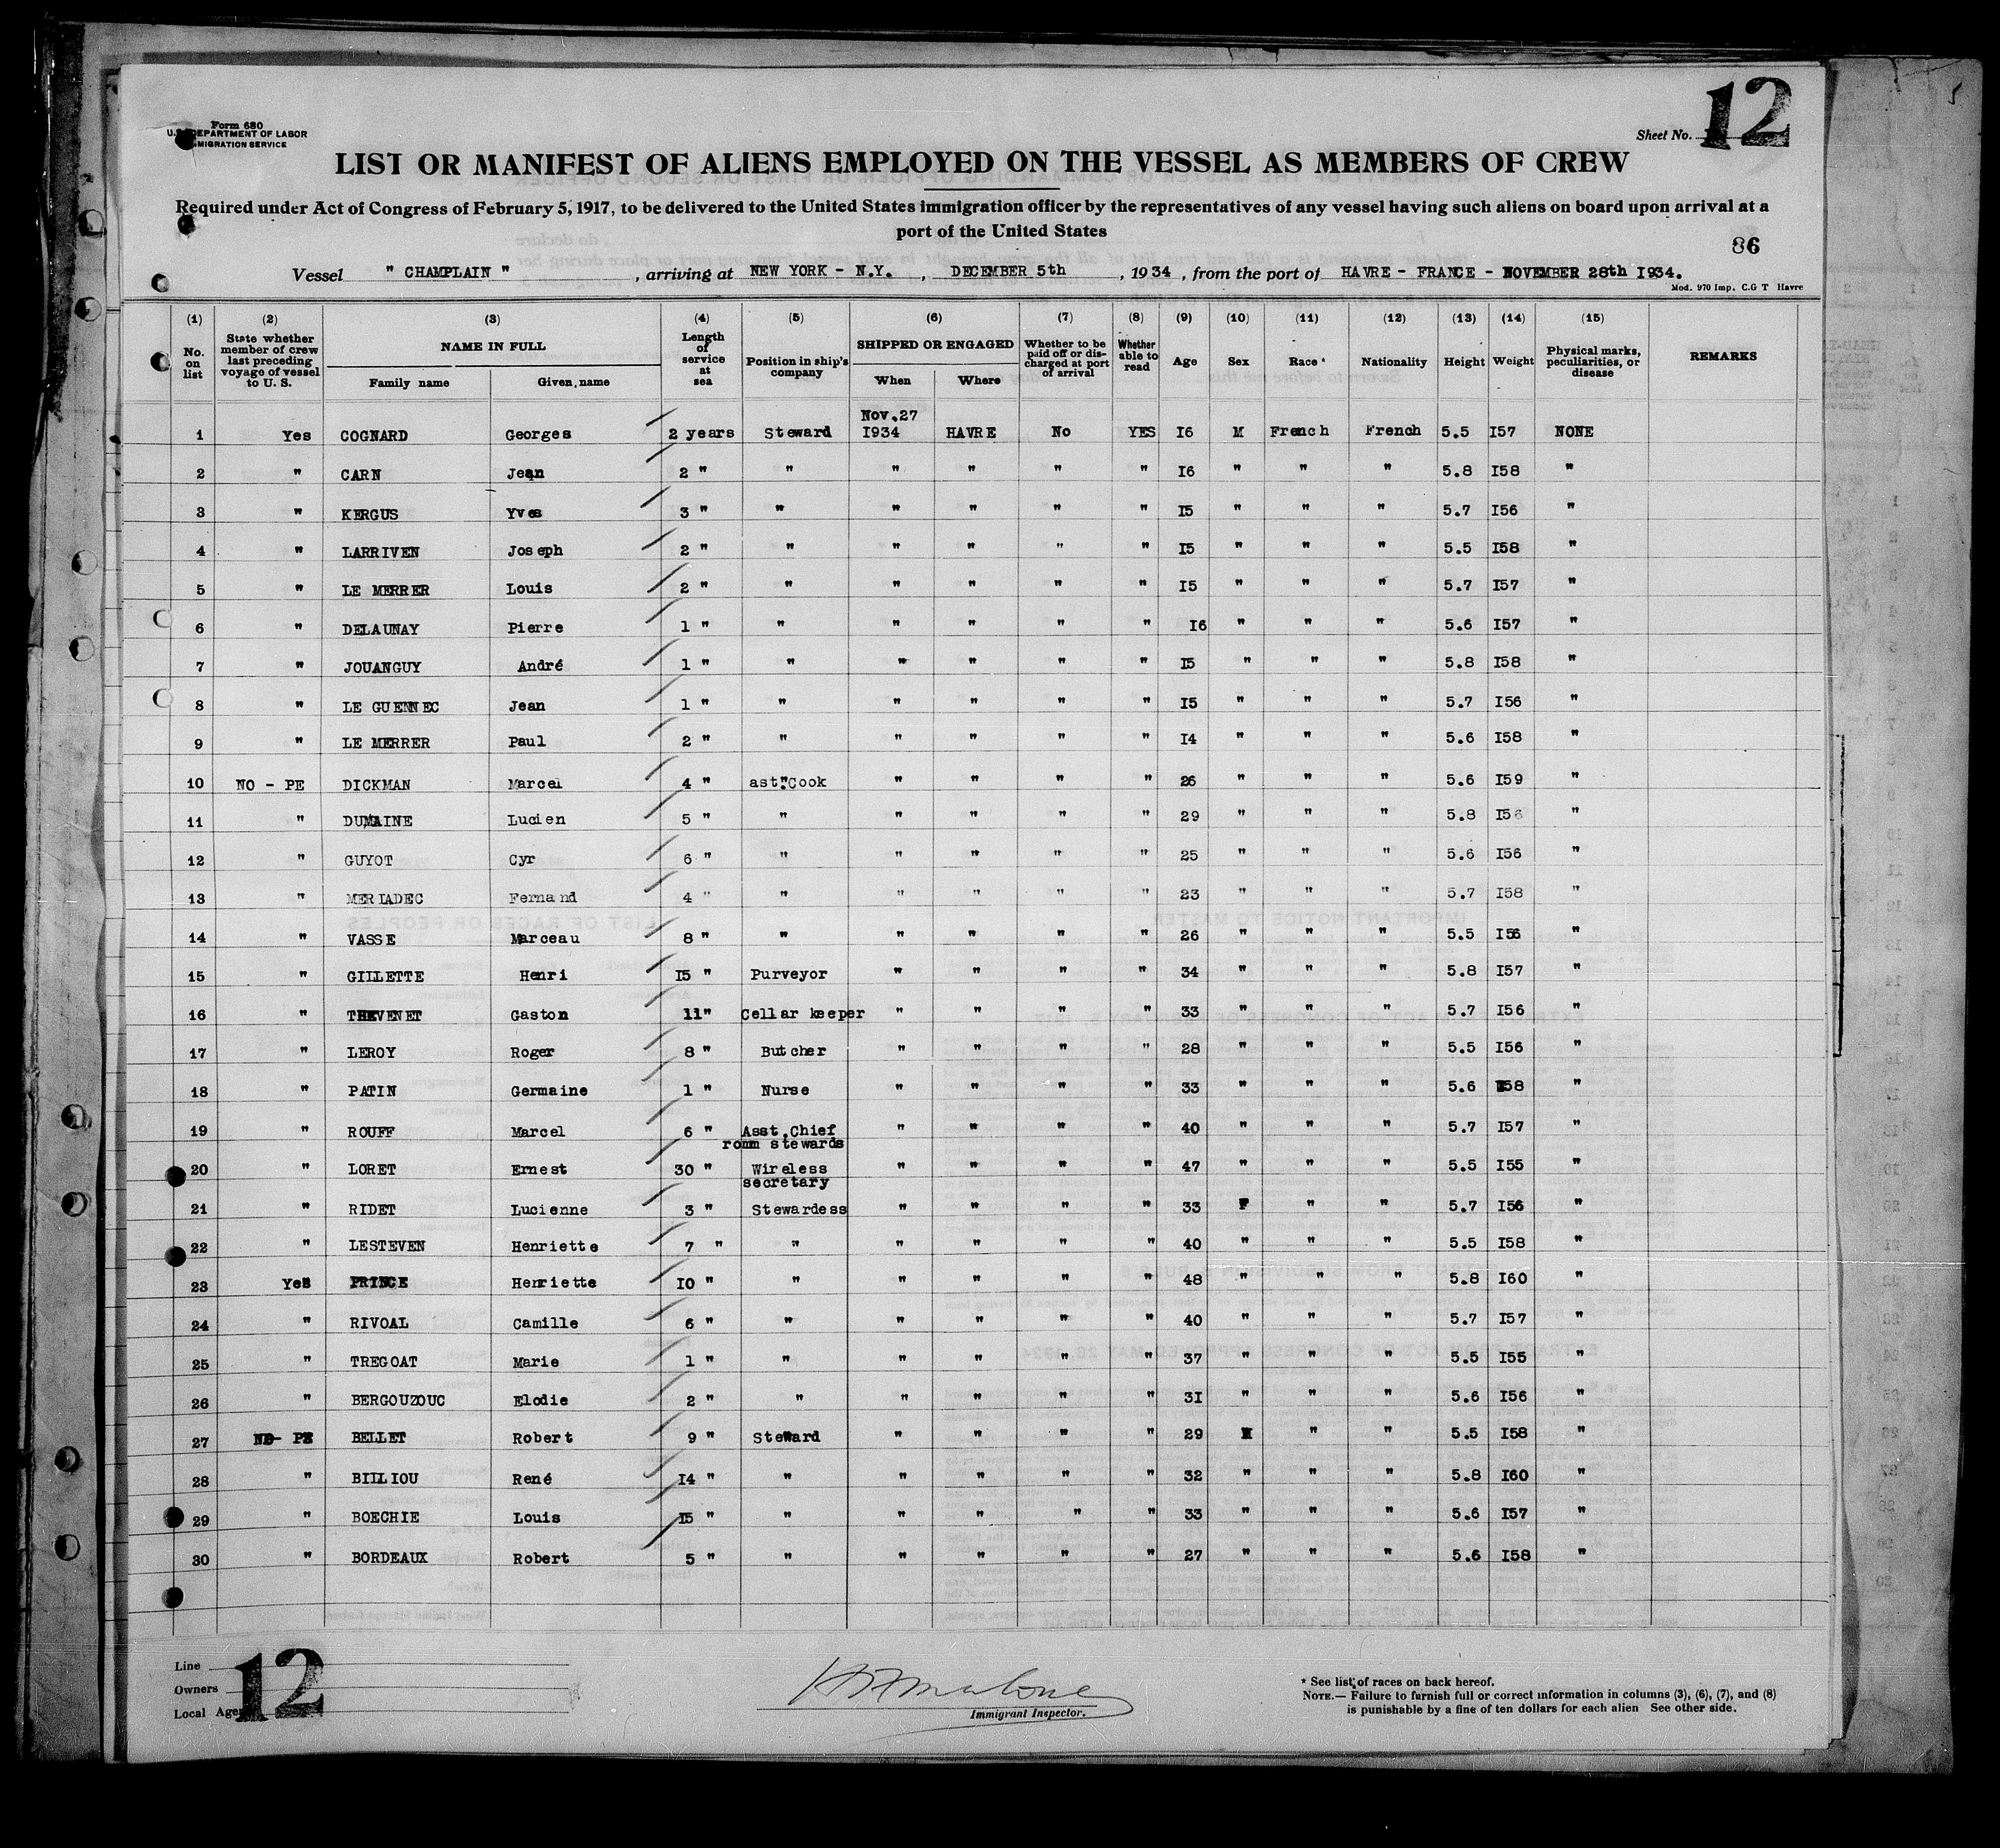 Form 680
U.S. DEPARTMENT OF LABOR
IMMIGRATION SERVICE
Sheet No. 12
LIST OR MANIFEST OF ALIENS EMPLOYED ON THE VESSEL AS MEMBERS OF CREW
Required under Act of Congress of February 5, 1917, to be delivered to the United States immigration officer by the representatives of any vessel having such aliens on board upon arrival at a
port of the United States
86
Vessel " CHAMPLAIN " , arriving at NEW YORK - N.Y. , DECEMBER 5th , 1934 , from the port of HAVRE - FRANCE - NOVEMBER 28th I934.
Mod. 970 Imp. C.G T Havre
(1) No. on list (2) State whether member of crew last preceding voyage of vessel to U. S. (3) NAME IN FULL Family name Given name (4) Length of service at sea (5) Position in ship's company (6) SHIPPED OR ENGAGED When Where (7) Whether to be paid off or discharged at port of arrival (8) Whether able to read (9) Age (10) Sex (11) Race * (12) Nationality (13) Height (14) Weight (15) Physical marks, peculiarities, or disease REMARKS
1 Yes COGNARD Georges 2 years Steward Nov.27 I934 HAVRE No YES I6 M French French 5.5 I57 NONE
2 " CARN Jean 2 " " " " " " I6 " " " 5.8 I58 "
3 " KERGUS Yves 3 " " " " " " I5 " " " 5.7 I56 "
4 " LARRIVEN Joseph 2 " " " " " " I5 " " " 5.5 I58 "
5 " LE MERRER Louis 2 " " " " " " I5 " " " 5.7 I57 "
6 " DELAUNAY Pierre 1 " " " " " " I6 " " " 5.6 I57 "
7 " JOUANGUY André 1 " " " " " " I5 " " " 5.8 I58 "
8 " LE GUENNEC Jean 1 " " " " " " I5 " " " 5.7 I56 "
9 " LE MERRER Paul 2 " " " " " " I4 " " " 5.6 I58 "
10 NO - PE DICKMAN Marcel 4 " ast.Cook " " " " 26 " " " 5.6 I59 "
11 " DUMAINE Lucien 5 " " " " " " 29 " " " 5.8 I56 "
12 " GUYOT Cyr 6 " " " " " " 25 " " " 5.6 I56 "
13 " MERIADEC Fernand 4 " " " " " " 23 " " " 5.7 I58 "
14 " VASSE Marceau 8 " " " " " " 26 " " " 5.5 I56 "
15 " GILLETTE Henri I5 " Purveyor " " " " 34 " " " 5.8 I57 "
16 " THEVENET Gaston 11 " Cellar keeper " " " " 33 " " " 5.7 I56 "
17 " LEROY Roger 8 " Butcher " " " " 28 " " " 5.5 I56 "
18 " PATIN Germaine 1 " Nurse " " " " 33 " " " 5.6 I58 "
19 " ROUFF Marcel 6 " Asst.Chief room stewards " " " " 40 " " " 5.7 I57 "
20 " LORET Ernest 30 " Wireless secretary " " " " 47 " " " 5.5 I55 "
21 " RIDET Lucienne 3 " Stewardess " " " " 33 F " " 5.7 I56 "
22 " LESTEVEN Henriette 7 " " " " " " 40 " " " 5.5 I58 "
23 Yes PRINCE Henriette I0 " " " " " " 48 " " " 5.8 I60 "
24 " RIVOAL Camille 6 " " " " " " 40 " " " 5.7 I57 "
25 " TREGOAT Marie 1 " " " " " " 37 " " " 5.5 I55 "
26 " BERGOUZOUC Elodie 2 " " " " " " 3I " " " 5.6 I56 "
27 NO- PE BELLET Robert 9 " Steward " " " " 29 M " " 5.5 I58 "
28 " BILLIOU René I4 " " " " " " 32 " " " 5.8 I60 "
29 " BOECHIE Louis I5 " " " " " " 33 " " " 5.6 I57 "
30 " BORDEAUX Robert 5 " " " " " " 27 " " " 5.6 I58 "
Line
Owners
Local Agents
12
Immigrant Inspector.
* See list of races on back hereof.
NOTE.— Failure to furnish full or correct information in columns (3), (6), (7), and (8)
is punishable by a fine of ten dollars for each alien See other side.